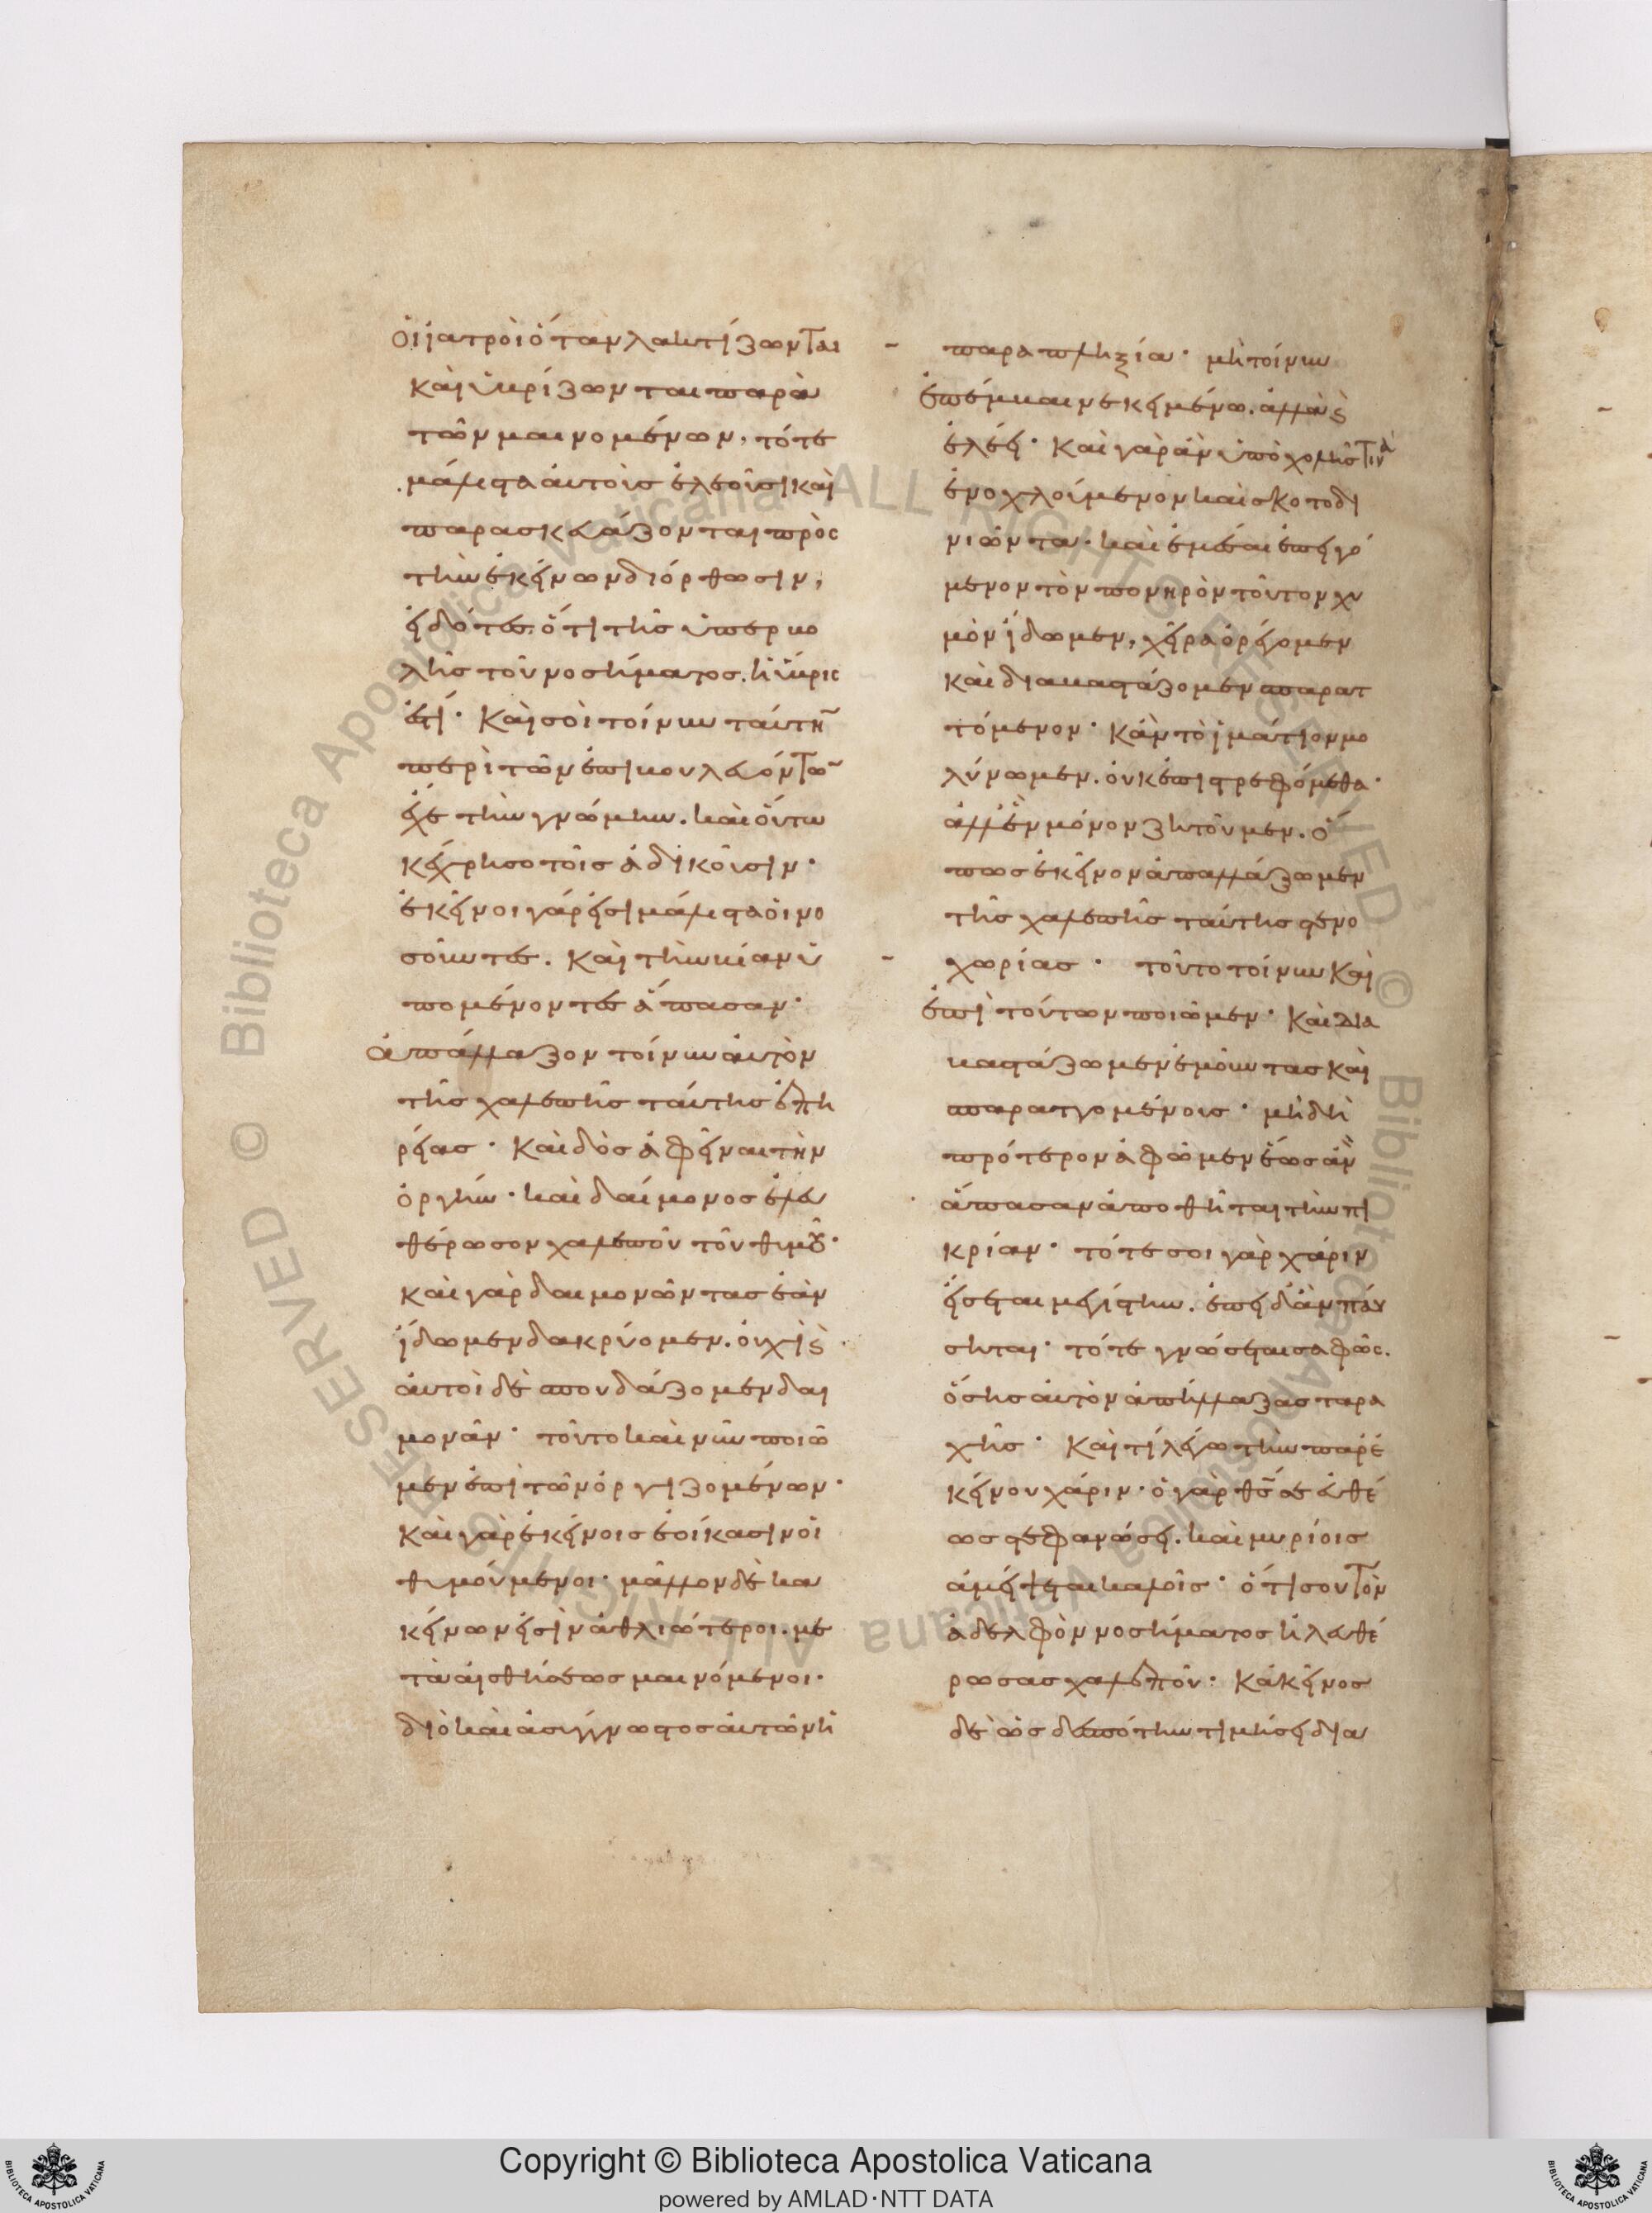 οἱ ἰατροὶ ὅταν λακτίζωνται
καὶ ὑβρίζωνται παρὰ
τῶν μαινομένων, τότε
μάλιστα αὐτοὺς ἐλεοῦσι καὶ
παρασκευάζονται πρὸς
τὴν ἐκείνων διόρθωσιν,
εἰδότες ὅτι τῆς ὑπερβο
λῆς τοῦ νοσήματος ἡ ὕβρις
ἐστί· καὶ σὺ τοίνυν ταύτην
περὶ τῶν ἐπιβουλευόντων
ἔχε τὴν γνώμην. καὶ οὕτω
κέχρησο τοῖς ἀδικοῦσιν·
ἐκεῖνοι γάρ εἰσι μάλιστα οἱ νο
σοῦντες. καὶ τὴν βίαν ὑ
πομένοντες ἅπασαν·
ἀπάλλαξον τοίνυν αὐτὸν
τῆς χαλεπῆς ταύτης ἐπη
ρείας· καὶ δὸς ἀφεῖναι τὴν
ὀργήν· καὶ δαίμονος ἐλευ
θέρωσον χαλεποῦ τοῦ θυμοῦ·
καὶ γὰρ δαιμονῶντας ἐὰν
ἴδωμεν δακρύομεν. οὐχὶ καὶ
αὐτοὶ δὲ σπουδάζομεν δαι
μονᾶν· τοῦτο καὶ νῦν ποιῶ
μεν ἐπὶ τῶν ὀργιζομένων·
καὶ γὰρ ἐκείνοις ἐοίκασιν οἱ
θυμούμενοι· μᾶλλον δὲ κα
κείνων εἰσὶν ἀθλιώτεροι. με
τὰ αἰσθήσεως μαινόμενοι·
διὸ καὶ ἀσύγγνωστος αὐτῶν ἡ
παραπληξία· μὴ τοίνυν
ἐπέμβαινε κειμένω. ἀλλὰ καὶ
ἐλέει· καὶ γὰρ ἂν ὑπὸ χολῆς τινὰ
ἐνοχλούμενον καὶ σκοτοδι
νιῶντα· καὶ ἐμέσαι ἐπειγό
μενον τὸν πονηρὸν τοῦτον χυ
μὸν ἴδωμεν, χεῖρα ὀρέγομεν
καὶ διαβαστάζομεν σπαρατ
τόμενον· κἂν τὸ ἱμάτιον μο
λύνωμεν. οὐκ ἐπιστρεφόμεθα·
ἀλλ' ἓν μόνον ζητοῦμεν. ὅ
πως ἐκεῖνον ἀπαλλάξωμεν
τῆς χαλεπῆς ταύτης στενο
χωρίας· τοῦτο τοίνυν καὶ
ἐπὶ τούτων ποιῶμεν· καὶ δια
βαστάζωμεν ἐμοῦντας καὶ
σπαρατγομένοις· μὴ δὴ
πρότερον ἀφῶμεν ἕως ἂν
ἅπασαν ἀποθῆται τὴν πι
κρίαν· τότε σοι γὰρ χάριν
εἴσεται μεγίστην. ἐπειδὰν παύ
σηται· τότε γνώσεται σαφῶς.
ὅσης αὐτὸν ἀπήλλαξας ταρα
χῆς· καὶ τί λέγω τὴν παρ' ἐ
κείνου χάριν· ὁ γὰρ θς σε εὐθέ
ως στεφανώσει. καὶ μυρίοις
ἀμείψεται καλοῖς· ὅτι σου τὸν
ἀδελφὸν νοσήματος ἠλευθέ
ρωσας χαλεποῦ· κἀκεῖνος
δὲ ὡς δεσπότην τιμήσει δια